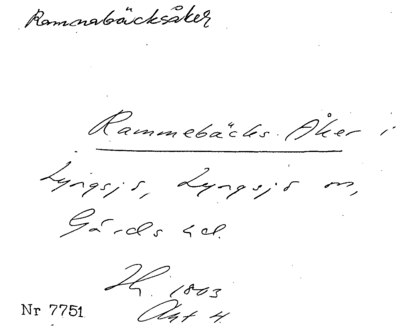 Rammebäcksåker
Rammebäcks Åker i
Lyngsjö, Lyngsjö sn,
Gärds hd.
1803
Akt 4.
Nr 7751